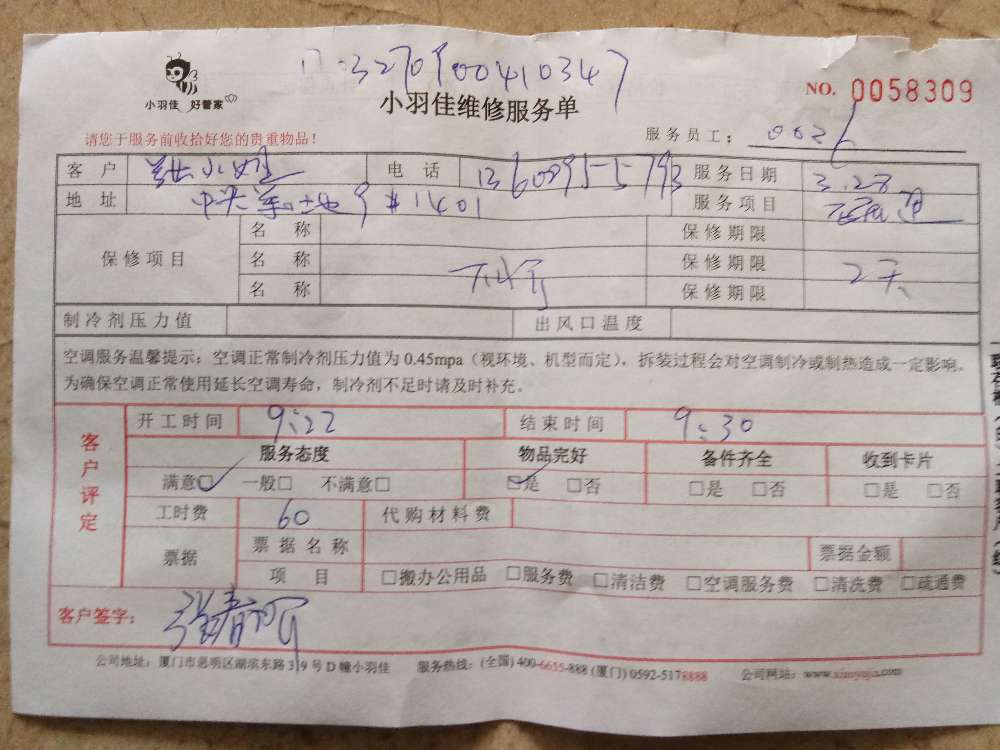 小羽佳 好管家
小羽佳维修服务单
NO. 0058309
请您于服务前收拾好您的贵重物品！
服务员工：
客户 小姐 电话 服务日期 3.28
地址 #1401 服务项目
保修项目 名称 保修期限
名称 保修期限 2天
名称 保修期限
制冷剂压力值 出风口温度
空调服务温馨提示：空调正常制冷剂压力值为0.45mpa（视环境、机型而定），拆装过程会对空调制冷或制热造成一定影响。
为确保空调正常使用延长空调寿命，制冷剂不足时请及时补充。
客户评定 开工时间 9:22 结束时间 9:30
服务态度 物品完好 备件齐全 收到卡片
满意☑ 一般□ 不满意□ ☑是 □否 □是 □否 □是 □否
工时费 60 代购材料费
票据 票据名称 票据金额
项目 □搬办公用品 □服务费 □清洁费 □空调服务费 □清洗费 □疏通费
客户签字：
公司地址：厦门市思明区湖滨东路319号D幢小羽佳 服务热线：(全国) 400-6655-888 (厦门) 0592-5178888 公司网站：www.xiaoyujia.com